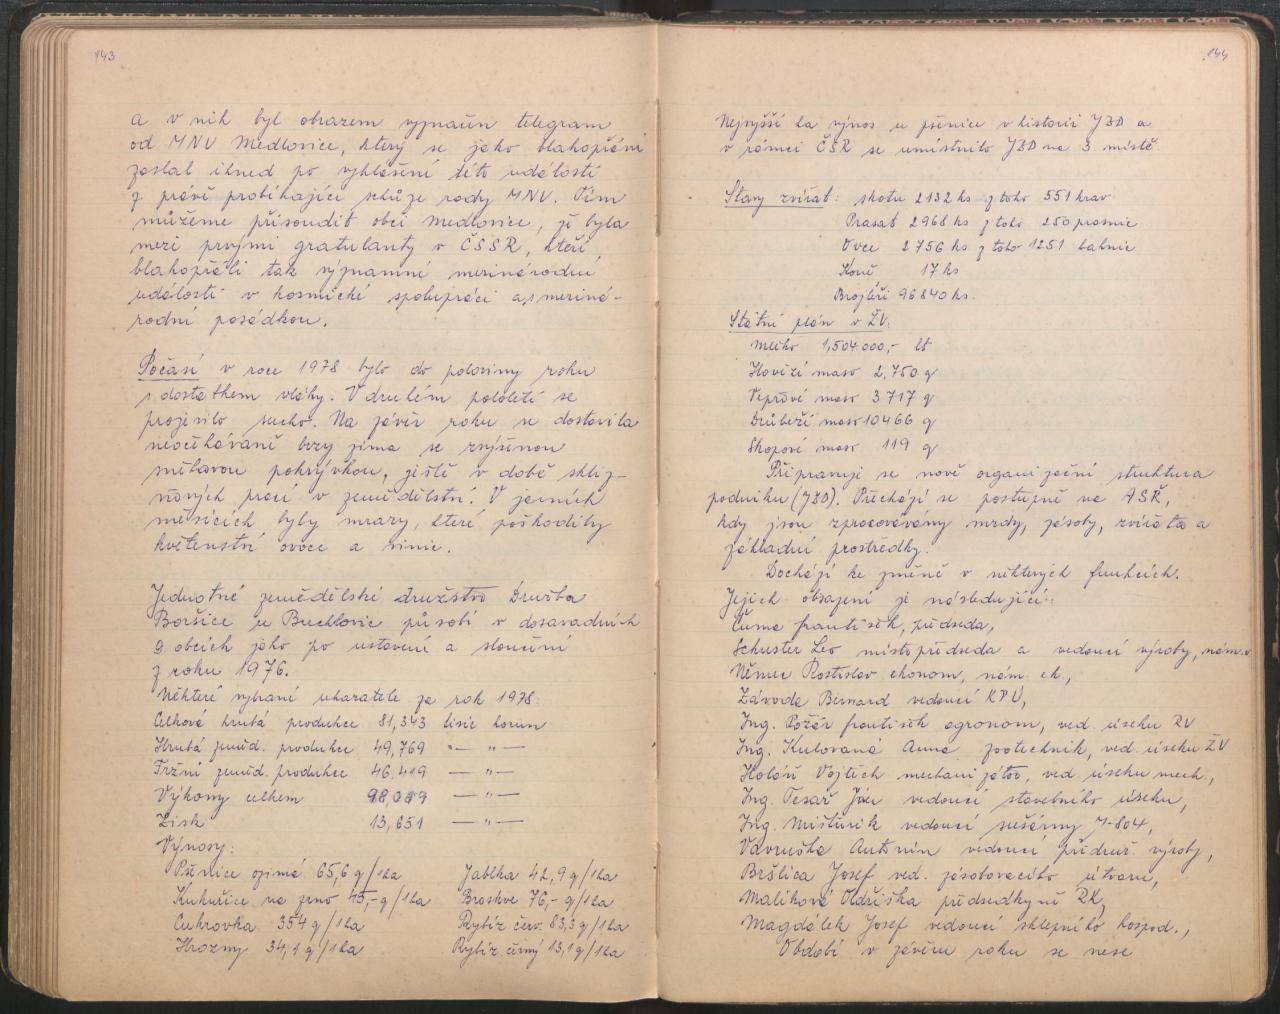 143
a v nik byl obrazem vyznačen telegram
od MNV Medlovice, který se jako blahopřání
zaslal ihned po vyhlášení této události
z právě probíhající schůze rady MNV. Tím
můžeme přisoudit obci Medlovice, že byla
mezi prvými gratulanty v ČSSR, kteří
blahopřáli tak významné mezinárodní
události v kosmické spolupráci a s meziná-
rodní posádkou.
Počasí v roce 1978 bylo do poloviny roku
s dostatkem vláhy. V druhém pololetí se
projevilo sucho. Na závěr roku se dostavila
neočekávaně brzy zima se zvýšenou
sněhovou pokrývkou, ještě v době skliz-
ňových prací v zemědělství. V jarních
měsících byly mrazy, které poškodily
květenství ovoce a vinic.
Jednotné zemědělské družstvo Družba
Boršice u Buchlovic působí v dosavadních
9 obcích jako po ustavení a sloučení
z roku 1976.
Některé vybrané ukazatele za rok 1978:
Celková hrubá produkce 81,343 tisíc korun
Hrubá zeměd. produkce 49,769 —"—
Tržní zeměd. produkce 46,419 —"—
Výkony celkem —"—
Zisk 13,651 —"—
Výnosy:
Pšenice ozimá 65,6 q/1ha Jablka 42,9 q/1ha
Kukuřice na zrno 45,- q/1ha Broskve 76,- q/1ha
Cukrovka 354 q/1ha Rybíz červ. 83,3 q/1ha
Hrozny 34,1 q/1ha Rybíz černý 13,1 q/1ha
144
Nejvyšší ha výnos u pšenice v historii JZD a
v rámci ČSR se umístnilo JZD na 3. místě.
Stavy zvířat: skotu 2132 ks z toho 551 krav
Prasat 2968 ks z toho 250 prasnic
Ovce 2756 ks z toho 1251 bahnic
Koně 17 ks
Brojleři 96840 ks.
Státní plán v ŽV:
Mléko 1,504 000,- lt
Hovězí maso 2,750 q
Vepřové maso 3717 q
Drůbeží maso 10466 q
Skopové maso 119 q
Připravuje se nová organizační struktura
podniku (JZD). Přechází se postupně na ASŘ,
kdy jsou zpracovávány mzdy, zásoby, zvířata a
základní prostředky.
Dochází ke změně v některých funkcích.
Jejich obsazení je následující:
Čuma František, předseda,
Schuster Leo místopředseda a vedoucí výroby,
Němec Rostislav ekonom, nám. ek,
Závoda Bernard vedoucí KPÚ,
Ing. Požár František agronom, ved. úseku RV
Ing. Kulovaná Anna zootechnik, ved. úseku ŽV
Holáň Vojtěch mechanizátor, ved. úseku mech.,
Ing. Tesař Ján vedoucí stavebního úseku,
Ing. Mišturik vedoucí sušárny M-804,
Vavruška Antonín vedoucí přidruž. výroby,
Bršlica Josef ved. zásobovacího útvaru,
Malíková Oldřiška předsedkyně RK,
Magdálek Josef vedoucí sklepního hospod.,
Období v závěru roku se nese